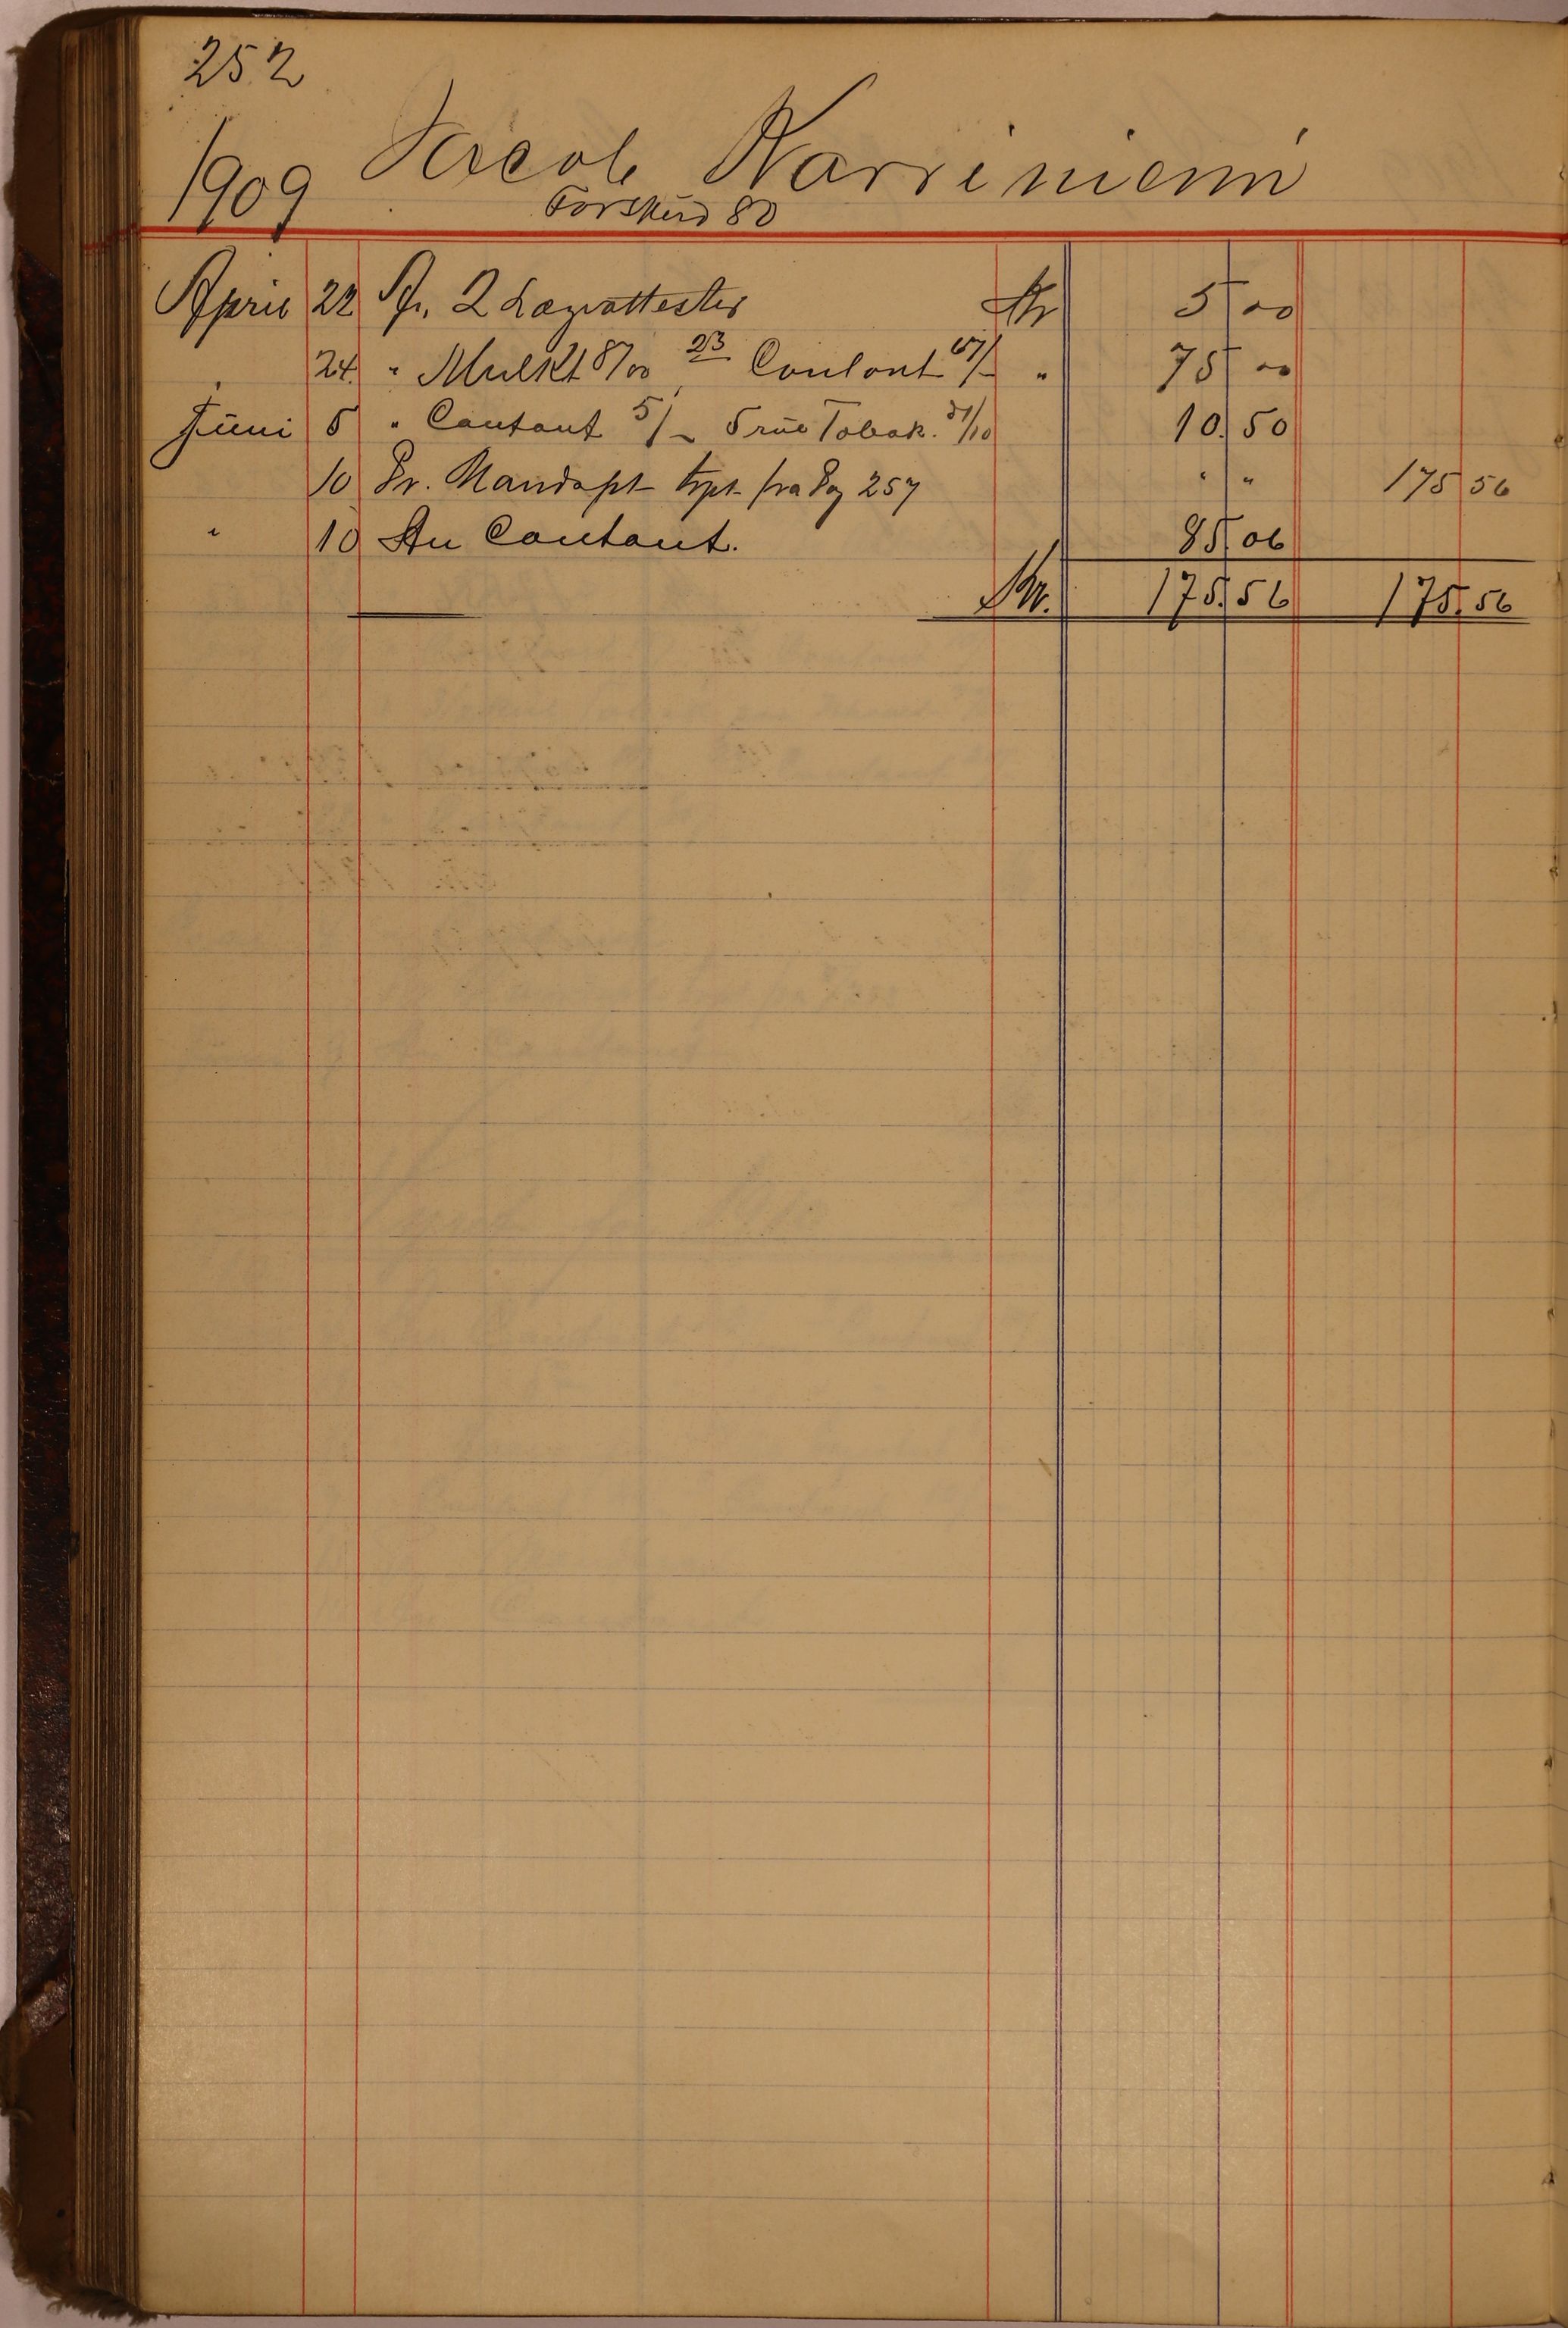 252
1909 Jacob Narviniemi
Forskud 80
April 22 Pr. 2 Lægeattester Kr 5 00
24. " Mulkt 8/00 23 Contant 67/- " 75 00
Juni 5 " Contant 5/- Tobak. 10.50
10 Pr. Mandskpt trpt fra Pag 257 " " 175 56
" 10 An Contant. 85.06
Kr. 175.56 175.56